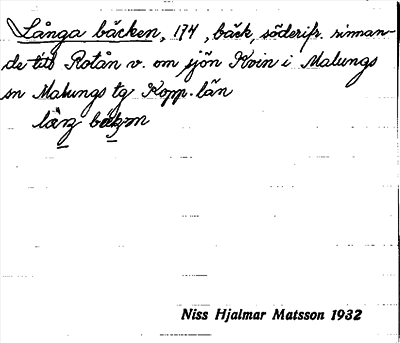 Långa bäcken, 174, bäck, söderifr. rinnan-
de till Rotån v. om sjön Kvin i Malungs
sn Malungs tg Kopp. län
låŋ
Niss Hjalmar Matsson 1932